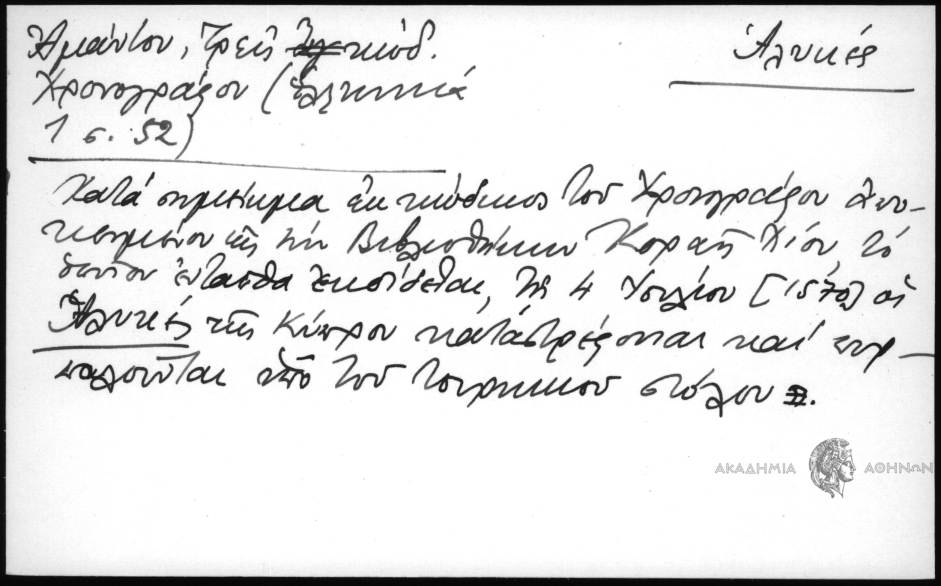 Ἀμάντου, Τρεῖς κώδ.
Χρονογράφου (Ἑλληνικά
1 σ. 52)
Ἁλυκές
Κατά σημείωμα ἐκ κώδικος τοῦ Χρονογράφου ἀπο-
κειμένου εἰς τήν Βιβλιοθήκην Κοραῆ Χίου, τό
ὁποῖον ἐνταῦθα ἐκδίδεται, τῇ 4 Ἰουλίου [1570] αἱ
Ἁλυκές τῆς Κύπρου καταστρέφονται καί πυρ-
πολοῦνται ὑπό τοῦ τουρκικοῦ στόλου.
ΑΚΑΔΗΜΙΑ ΑΘΗΝΩΝ